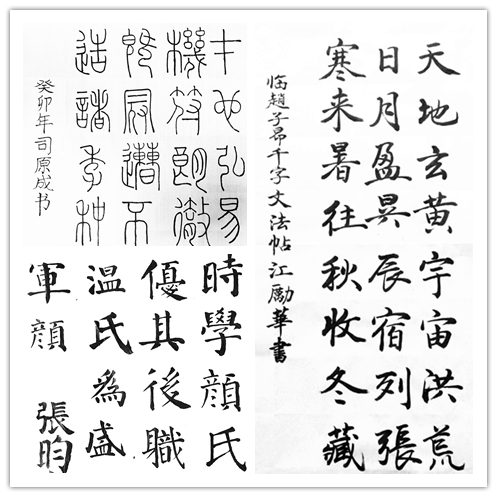 才也弘易
機符朗徹
既冠遭不
造諸季种
癸卯年司原成书
時學顔氏
優其後職
温氏為盛
軍顔
張昀
天地玄黄宇宙洪荒
日月盈昃辰宿列張
寒来暑往秋收冬藏
临趙子昂千字文法帖江勵華書